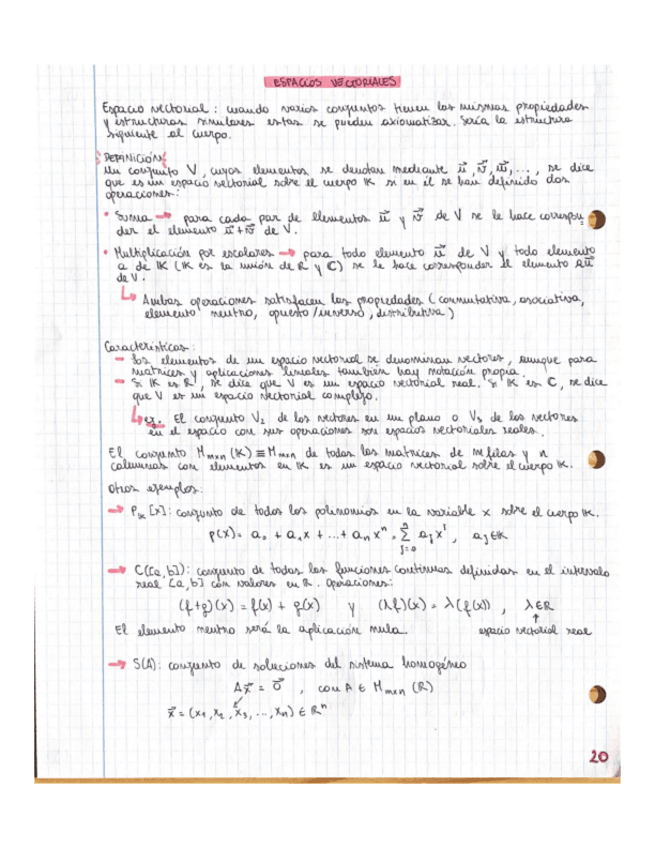 ESPACIOS VECTORIALES
Espacio vectorial: cuando varios conjuntos tienen las mismas propiedades
y estructuras similares estas se pueden axiomatizar. Sería la estructura
siguiente al cuerpo.
DEFINICIÓN
Un conjunto V, cuyos elementos se denotan mediante u⃗, v⃗, w⃗, ..., se dice
que es un espacio vectorial sobre el cuerpo K si en él se han definido dos
operaciones:
• Suma → para cada par de elementos u⃗ y v⃗ de V se le hace correspon
der el elemento u⃗+v⃗ de V.
• Multiplicación por escalares → para todo elemento u⃗ de V y todo elemento
a de K (K es la unión de R y C) se le hace corresponder el elemento au⃗
de V.
↳ Ambas operaciones satisfacen las propiedades (conmutativa, asociativa,
elemento neutro, opuesto/inverso, distributiva)
Características:
→ Los elementos de un espacio vectorial se denominan vectores, aunque para
matrices y aplicaciones lineales también hay notación propia.
→ Si K es R, se dice que V es un espacio vectorial real. Si K es C, se dice
que V es un espacio vectorial complejo.
↳ ej. El conjunto V₂ de los vectores en un plano o V₃ de los vectores
en el espacio con sus operaciones son espacios vectoriales reales.
El conjunto Mmxn (K) ≡ Mmxn de todas las matrices de m filas y n
columnas con elementos en K es un espacio vectorial sobre el cuerpo K.
Otros ejemplos:
→ P_K [x]: conjunto de todos los polinomios en la variable x sobre el cuerpo K.
p(x) = a₀ + a₁x + ... + aₙxⁿ = Σ_{j=0}^{n} a_j x^j , a_j ∈ K
→ C([a,b]): conjunto de todas las funciones continuas definidas en el intervalo
real [a,b] con valores en R. Operaciones:
(f+g)(x) = f(x) + g(x) y (λf)(x) = λ(f(x)) , λ∈R
↑
El elemento neutro será la aplicación nula. espacio vectorial real
→ S(A): conjunto de soluciones del sistema homogéneo
Ax⃗ = 0⃗ , con A ∈ Mmxn (R)
x⃗ = (x₁, x₂, x₃, ..., xₙ) ∈ Rⁿ
20